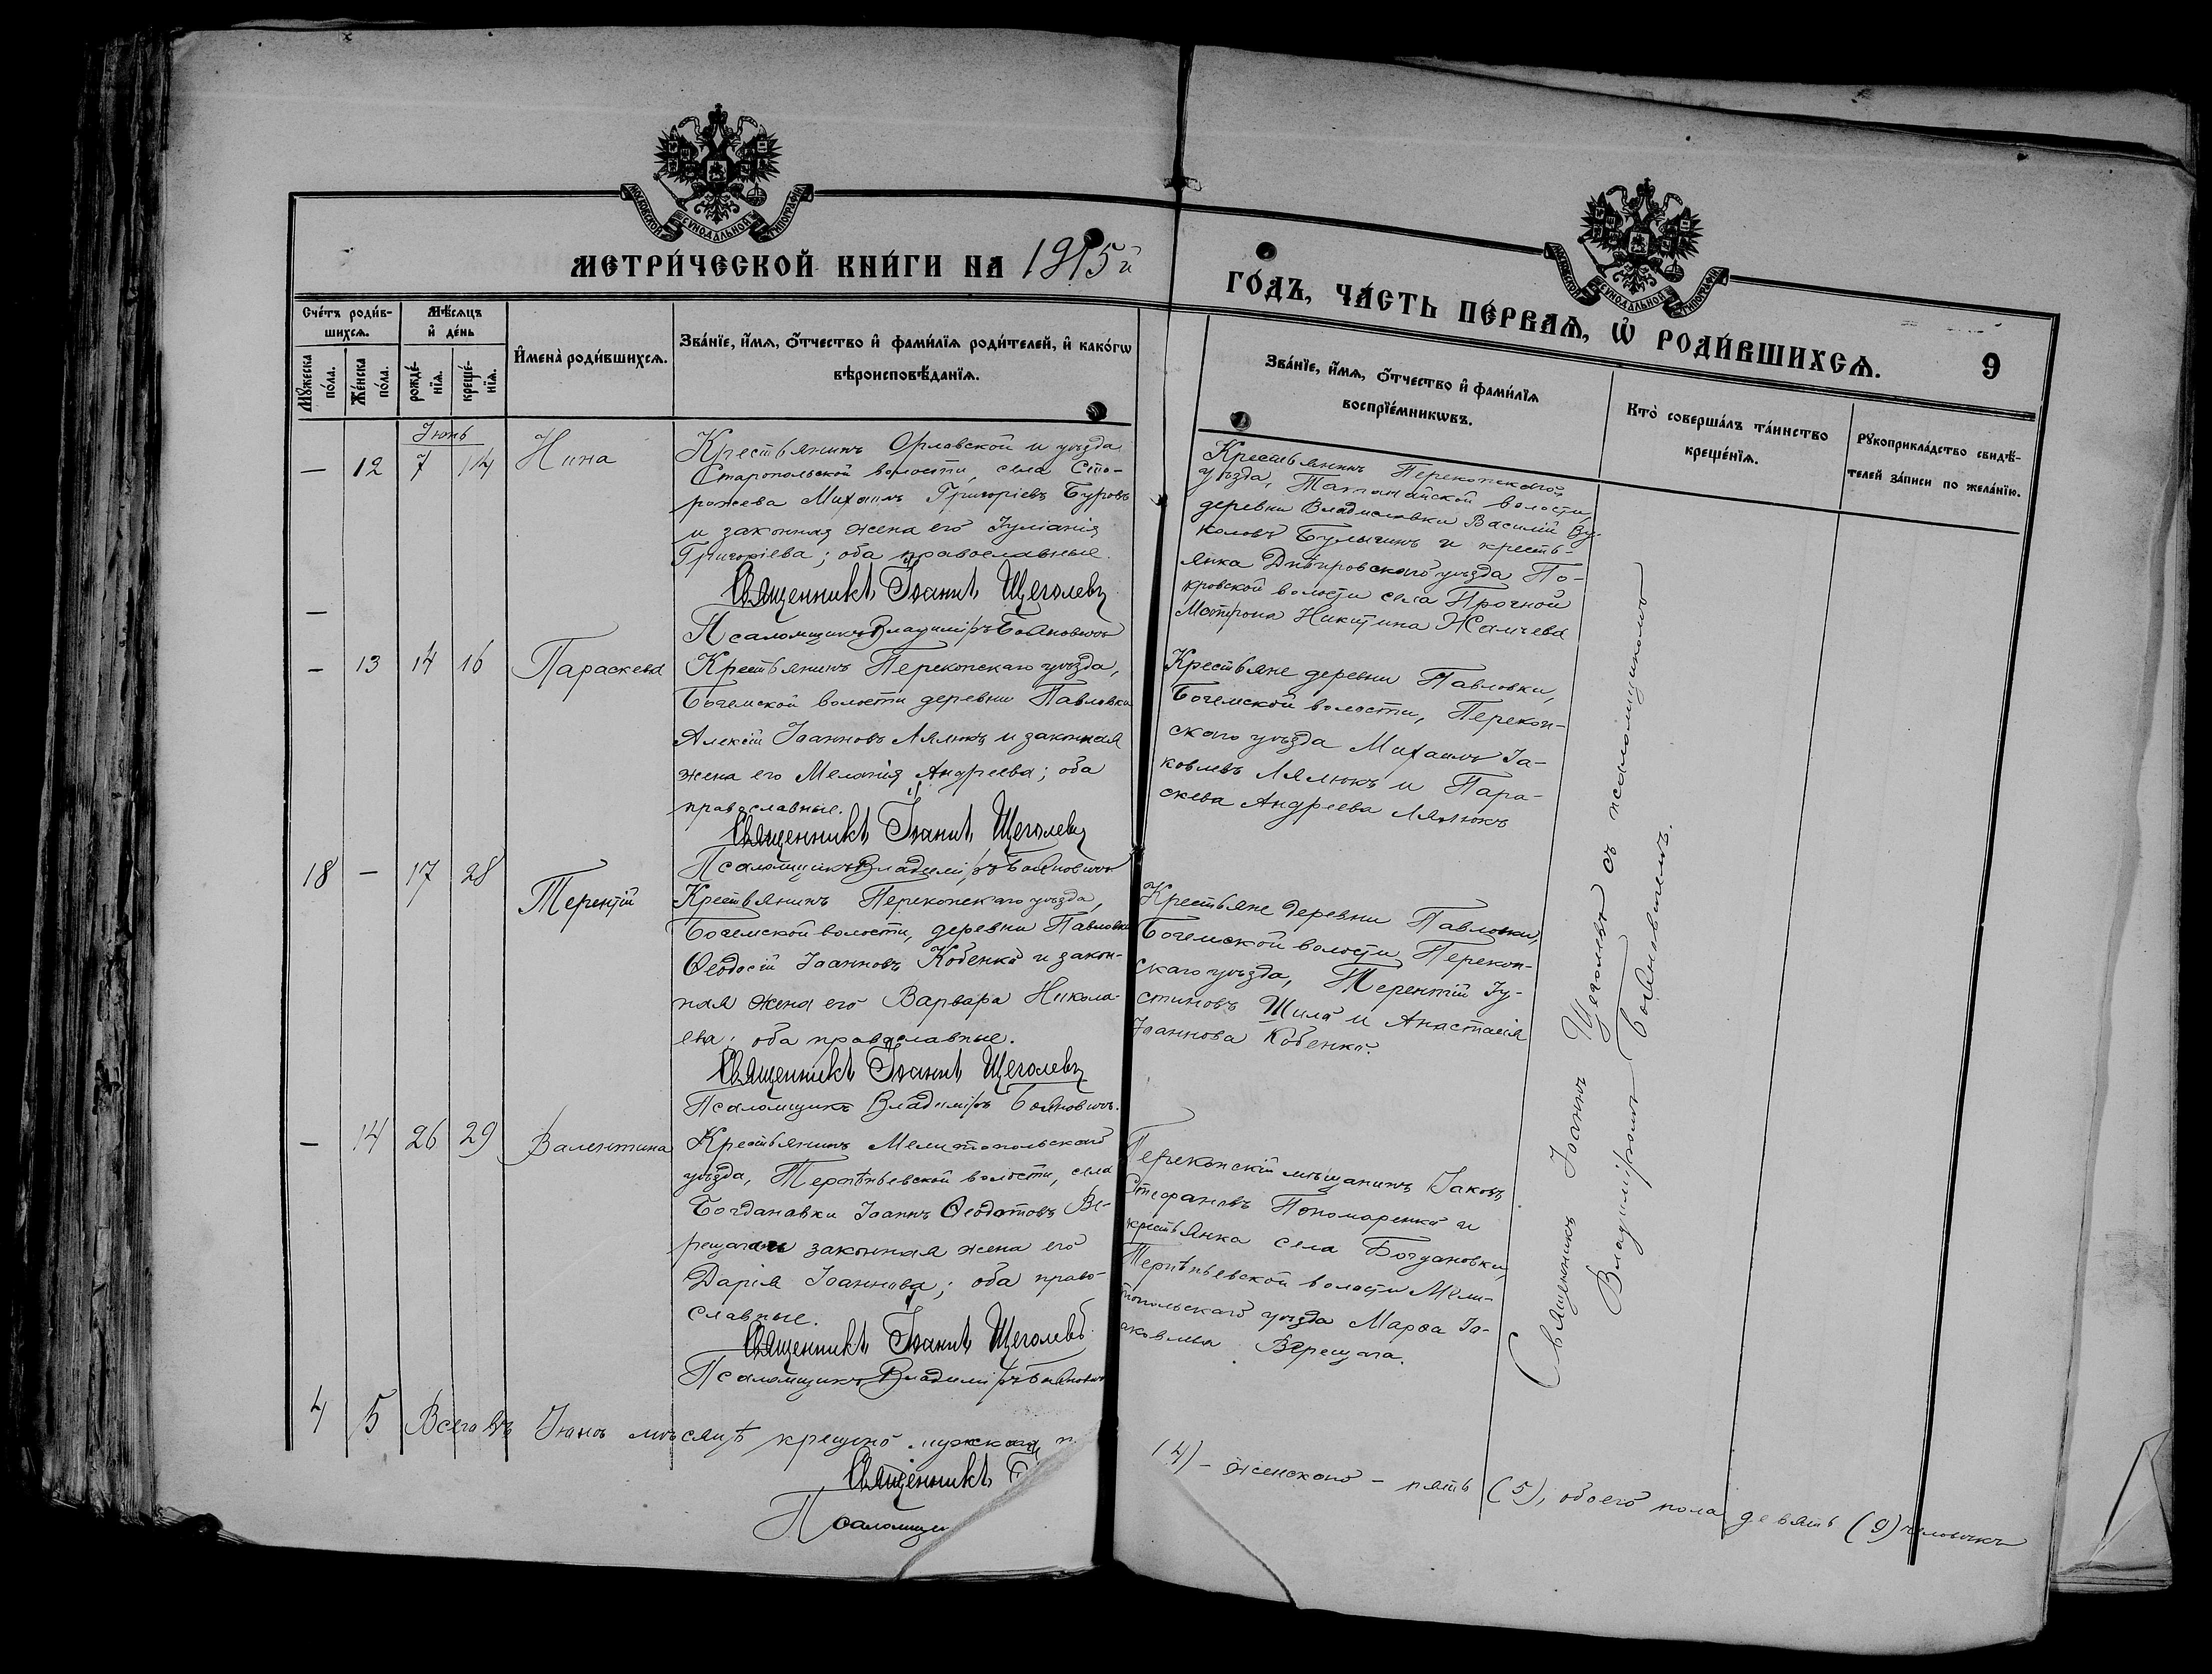 МОСКОВСКОЙ СѴНОДАЛЬНОЙ ТИПОГРАФІИ
МОСКОВСКОЙ СѴНОДАЛЬНОЙ ТИПОГРАФІИ
МЕТРИ́ЧЕСКОЙ КНИ́ГИ НА 1915й
ГО́ДЪ, ЧА́СТЬ ПЕ́РВАѦ, Ѡ҆ РОДИ́ВШИХСѦ.
9
Сче́тъ роди́в-
шихсѧ.
Мѣ́сѧцъ
и҆ де́нь
Мꙋ́жеска
по́ла.
Же́нска
по́ла.
рожде́-
нїѧ.
креще́-
нїѧ.
И҆мена̀ роди́вшихсѧ.
Зва́нїе, и҆́мѧ, ѻ҆́тчество и҆ фами́лїѧ роди́телей, и҆ како́гѡ
вѣроисповѣ́данїѧ.
Зва́нїе, и҆́мѧ, ѻ҆́тчество и҆ фами́лїѧ
воспрїе́мникѡвъ.
Кто̀ соверша́лъ та́инство
креще́нїѧ.
Рꙋкоприкла́дство свидѣ́-
телей за́писи по жела́нїю.
Іюнь
— 12 7 14 Нина
Крестьянинъ Орловской и уѣзда
волости, села Сто-
рожева Михаилъ Григоріевъ Буровъ
и законная жена его Іуліанія
Григоріева; оба православные.
Священникъ Іоаннъ Щеголевъ
—
Псаломщикъ Владиміръ Бояновичъ
Крестьянинъ Перекопскаго
уѣзда, волости,
деревни Владиславки Василій Ву-
коловъ Булыгинъ и кресть-
янка Днѣпровскаго уѣзда По-
кровской волости села Прогной
Матрона Никитина
— 13 14 16 Параскева
Крестьянинъ Перекопскаго уѣзда,
Богемской волости деревни Павловки
Алексій Іоанновъ Лялюкъ и законная
жена его Меланія Андреева; оба
православные.
Священникъ Іоаннъ Щеголевъ
Псаломщикъ Владиміръ Бояновичъ
Крестьяне деревни Павловки,
Богемской волости, Перекоп-
скаго уѣзда Михаилъ Іа-
ковлевъ Лялюкъ и Пара-
скева Андреева Лялюкъ
18 — 17 28 Терентій
Крестьянинъ Перекопскаго уѣзда,
Богемской волости, деревни Павловки
Ѳеодосій Іоанновъ Кобенко и закон-
ная жена его Варвара Никола-
ева; оба православные.
Священникъ Іоаннъ Щеголевъ
Псаломщикъ Владиміръ Бояновичъ.
Крестьяне деревни Павловки,
Богемской волости Перекоп-
скаго уѣзда, Терентій Іу-
стиновъ Шило и Анастасія
Іоаннова Кобенко.
— 14 26 29 Валентина
Крестьянинъ Мелитопольскаго
уѣзда, Терпѣньевской волости, села
Богдановки Іоаннъ Ѳеодотовъ Ве-
рещага и законная жена его
Дарія Іоаннова; оба право-
славные.
Священникъ Іоаннъ Щеголевъ
Псаломщикъ Владиміръ Бояновичъ
Перекопскій мѣщанинъ Іаковъ
Стефановъ Пономаренко и
крестьянка села Богдановки,
Терпѣньевской волости Мели-
топольскаго уѣзда Марѳа Іа-
ковлева Верещага.
Священникъ Іоаннъ Щеголевъ съ псаломщикомъ
Владиміромъ Бояновичемъ.
4 5 Всего въ Іюнѣ мѣсяцѣ крещено мужскаго п.
(4) – женскаго – пять (5), обоего пола девять (9) человѣкъ
Священникъ
Псаломщи